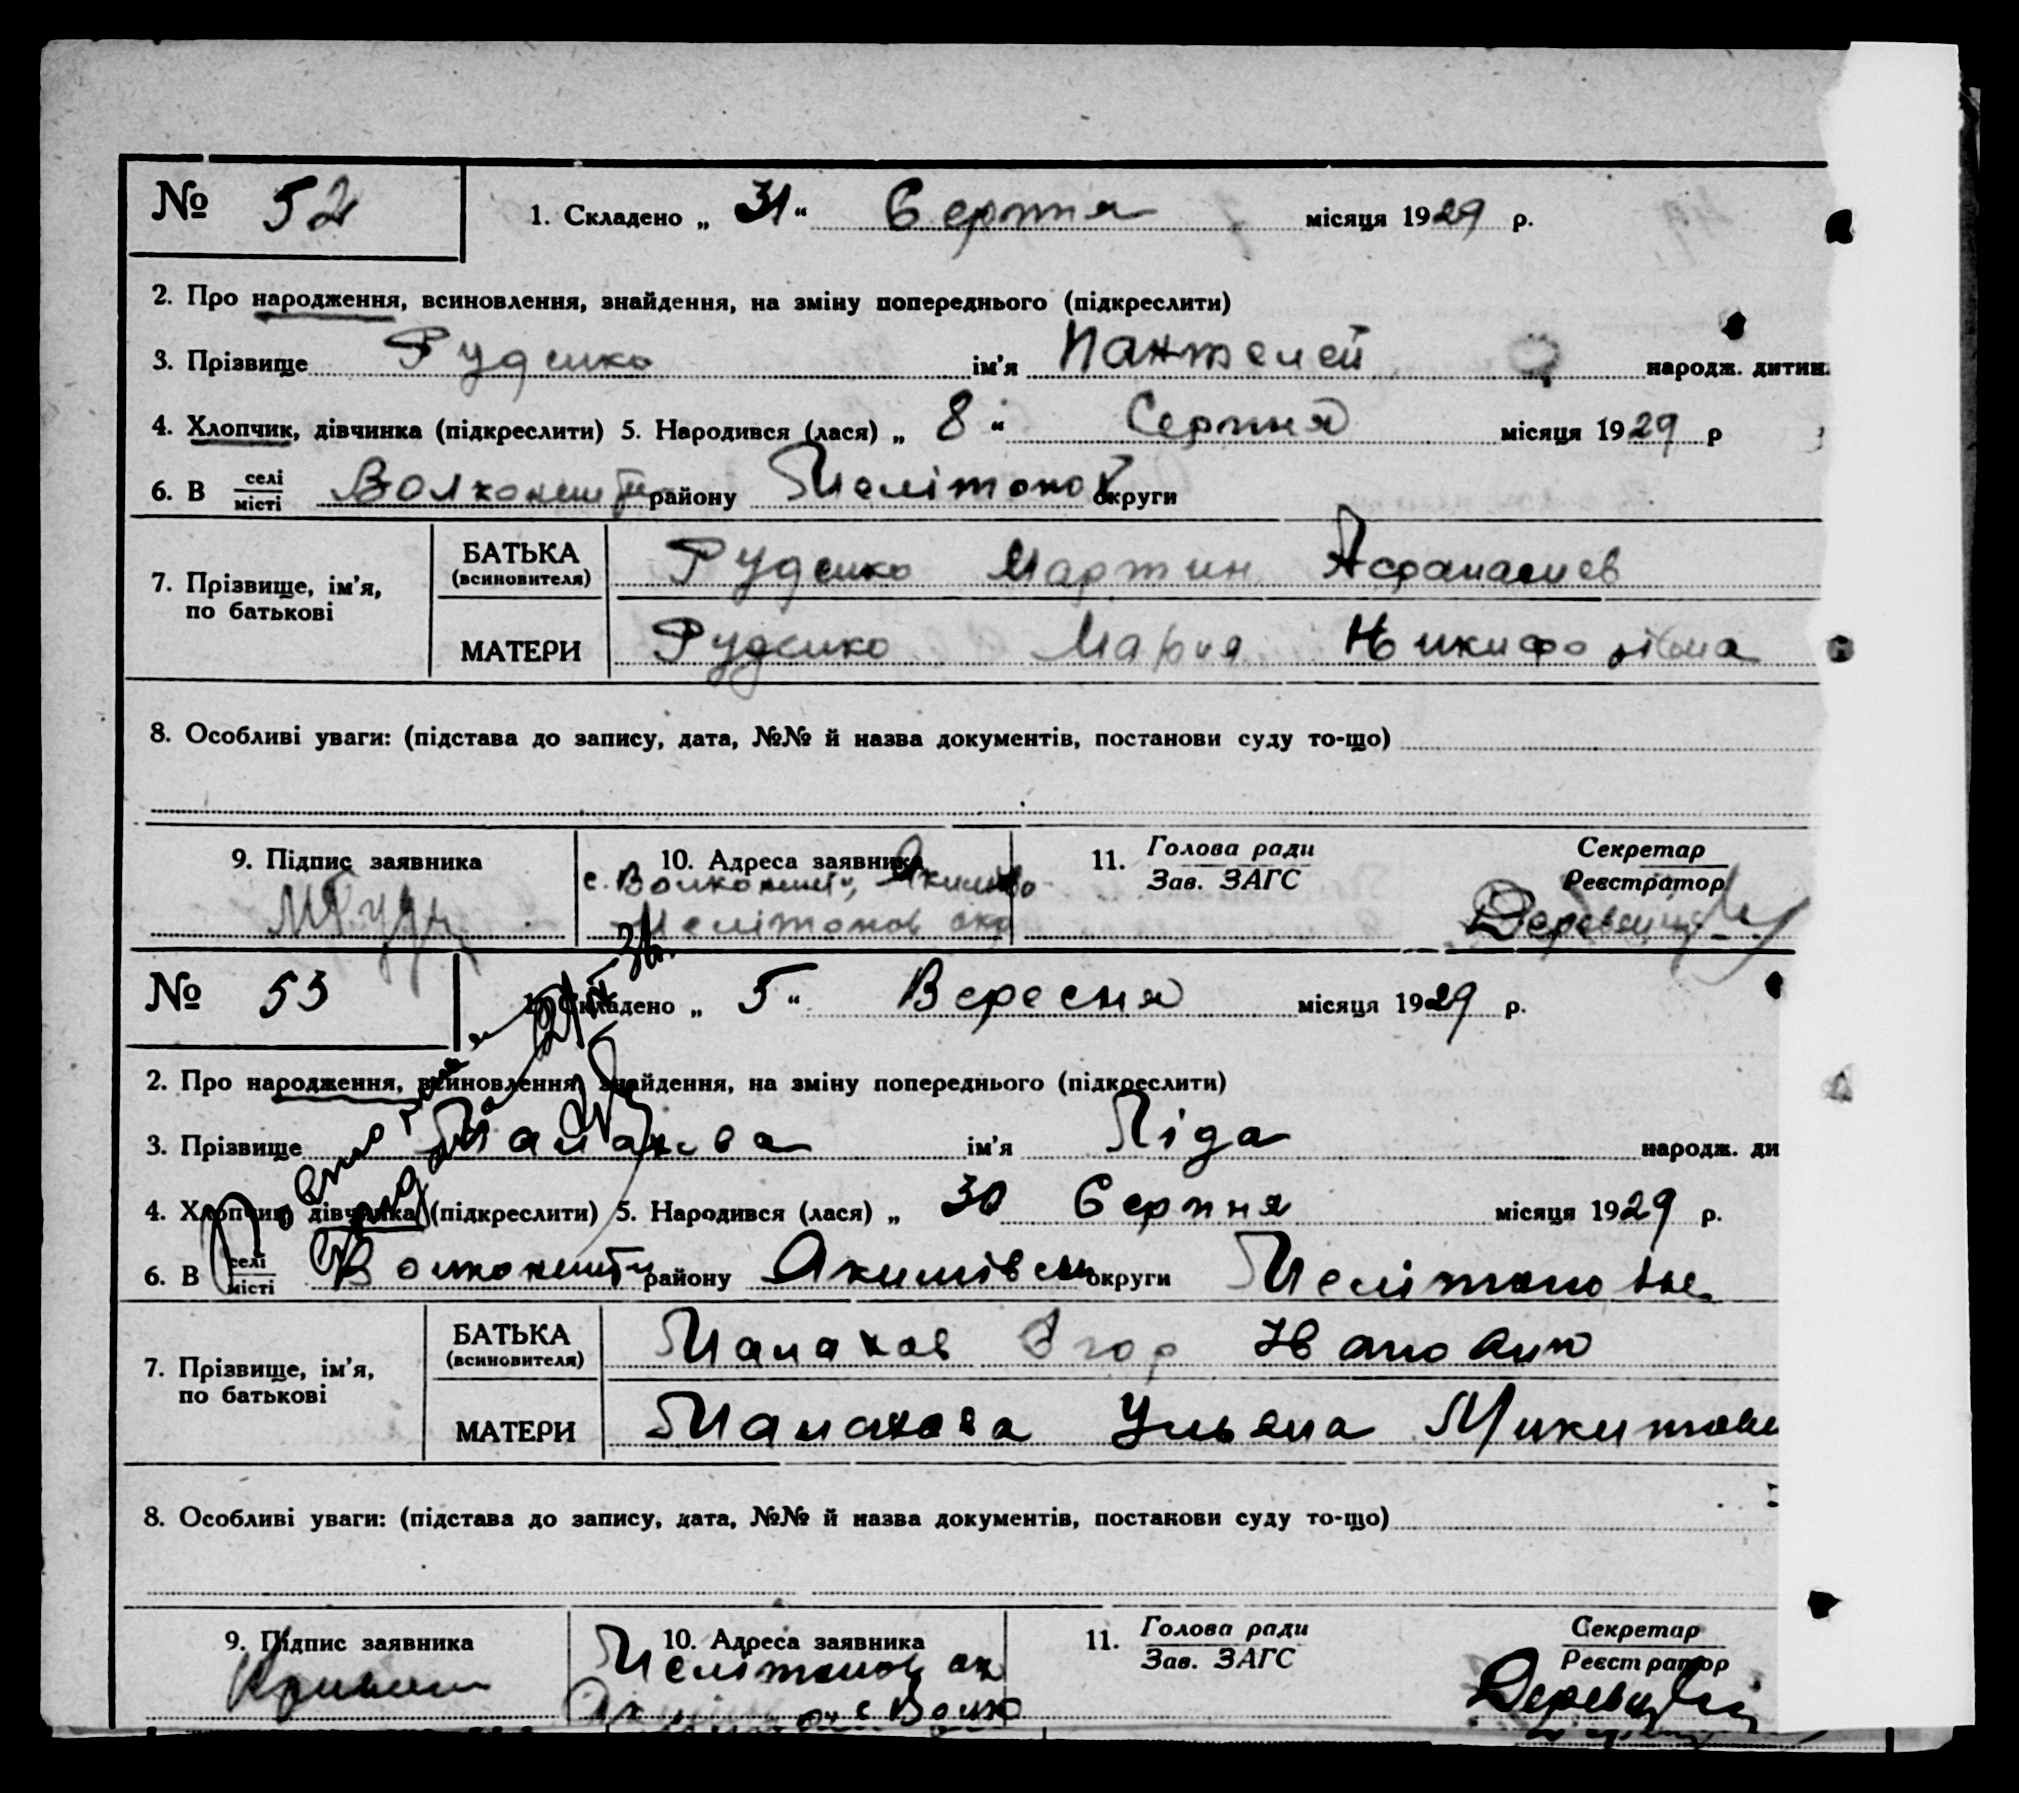 № 52 1. Складено „ 31 “ Серпня місяця 1929 р.
2. Про народження, всиновлення, знайдення, на зміну попереднього (підкреслити)
3. Прізвище Руденко ім’я Пантелей народж. дитин.
4. Хлопчик, дівчинка (підкреслити) 5. Народився (лася) „ 8 “ Серпня місяця 1929 р
6. В селі місті Волконешти району Мелітопо округи
7. Прізвище, ім’я, по батькові
БАТЬКА (всиновителя) Руденко Мартин Афанасиев
МАТЕРИ Руденко Мария
8. Особливі уваги: (підстава до запису, дата, №№ й назва документів, постанови суду то-що)
9. Підпис заявника 10. Адреса заявника 11. Голова ради Зав. ЗАГС Секретар Реєстратор
с. Волконешти, Якимово
Мелітопов окр
№ 53 1. Складено „ 5 “ Вересня місяця 1929 р.
2. Про народження, всиновлення, знайдення, на зміну попереднього (підкреслити)
3. Прізвище Малахова ім’я Ліда народж. ди
4. Хлопчик, дівчинка (підкреслити) 5. Народився (лася) „ 30 Серпня місяця 1929 р.
6. В селі місті Волконешти району Якимівськ округи
7. Прізвище, ім’я, по батькові
БАТЬКА (всиновителя) Малахов Ігор Іванович
МАТЕРИ Малахова Ульяна Микитови
8. Особливі уваги: (підстава до запису, дата, №№ й назва документів, постанови суду то-що)
9. Підпис заявника 10. Адреса заявника 11. Голова ради Зав. ЗАГС Секретар Реєстратор
Мелітопов ок
с Волко